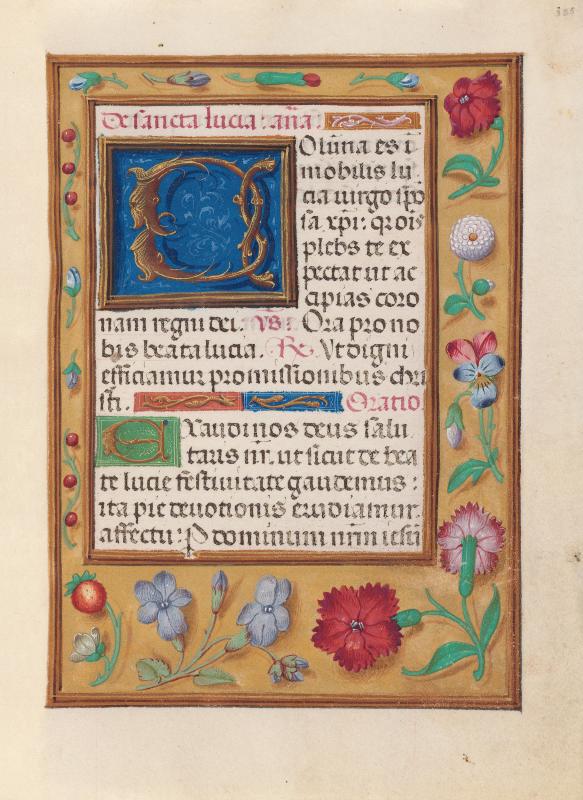 De sancta lucia : an̄a :
COlūna es ī
mobilis lu
cia uirgo spō
sa xp̄i : q̄ oīs
plebs te ex
pectat ut ac
cipias coro
nam regni dei. Vs. Ora pro no
bis beata lucia. Rx. Vt digni
efficiamur promissionibus chri
sti. Oratio
EXaudi nos deus salu
taris nr̄. ut sicut de bea
te lucie festiuitate gaudemus :
ita pie deuotionis erudiamur
affectu : P dominum nr̄m iesū